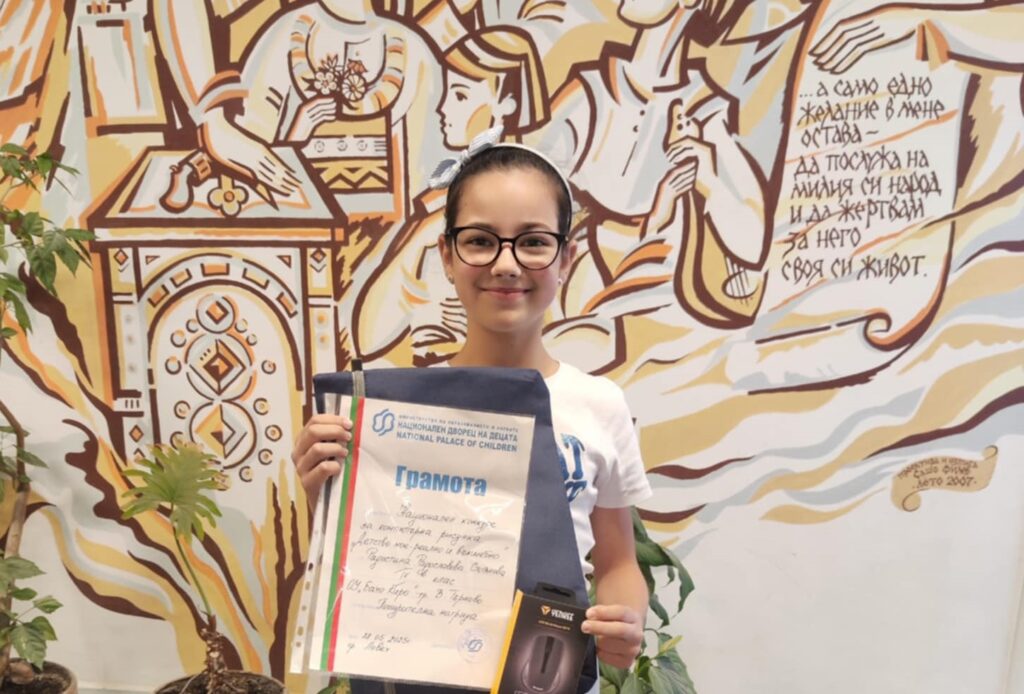 ...а само едно
желание в мене
остава –
да послужа на
милия си народ
и да жертвам
за него
своя си живот.
МИНИСТЕРСТВО НА ОБРАЗОВАНИЕТО И НАУКАТА
НАЦИОНАЛЕН ДВОРЕЦ НА ДЕЦАТА
NATIONAL PALACE OF CHILDREN
Грамота
Национален конкурс
за компютърна рисунка
„Детство мое - реално и вълшебно"
Радостина Стоянова
IV клас
ОУ „Бачо Киро" гр. В. Търново
Поощрителна награда
28.05.2025г.
гр. Ловеч
YENKEE
Сашо
лято 2007.